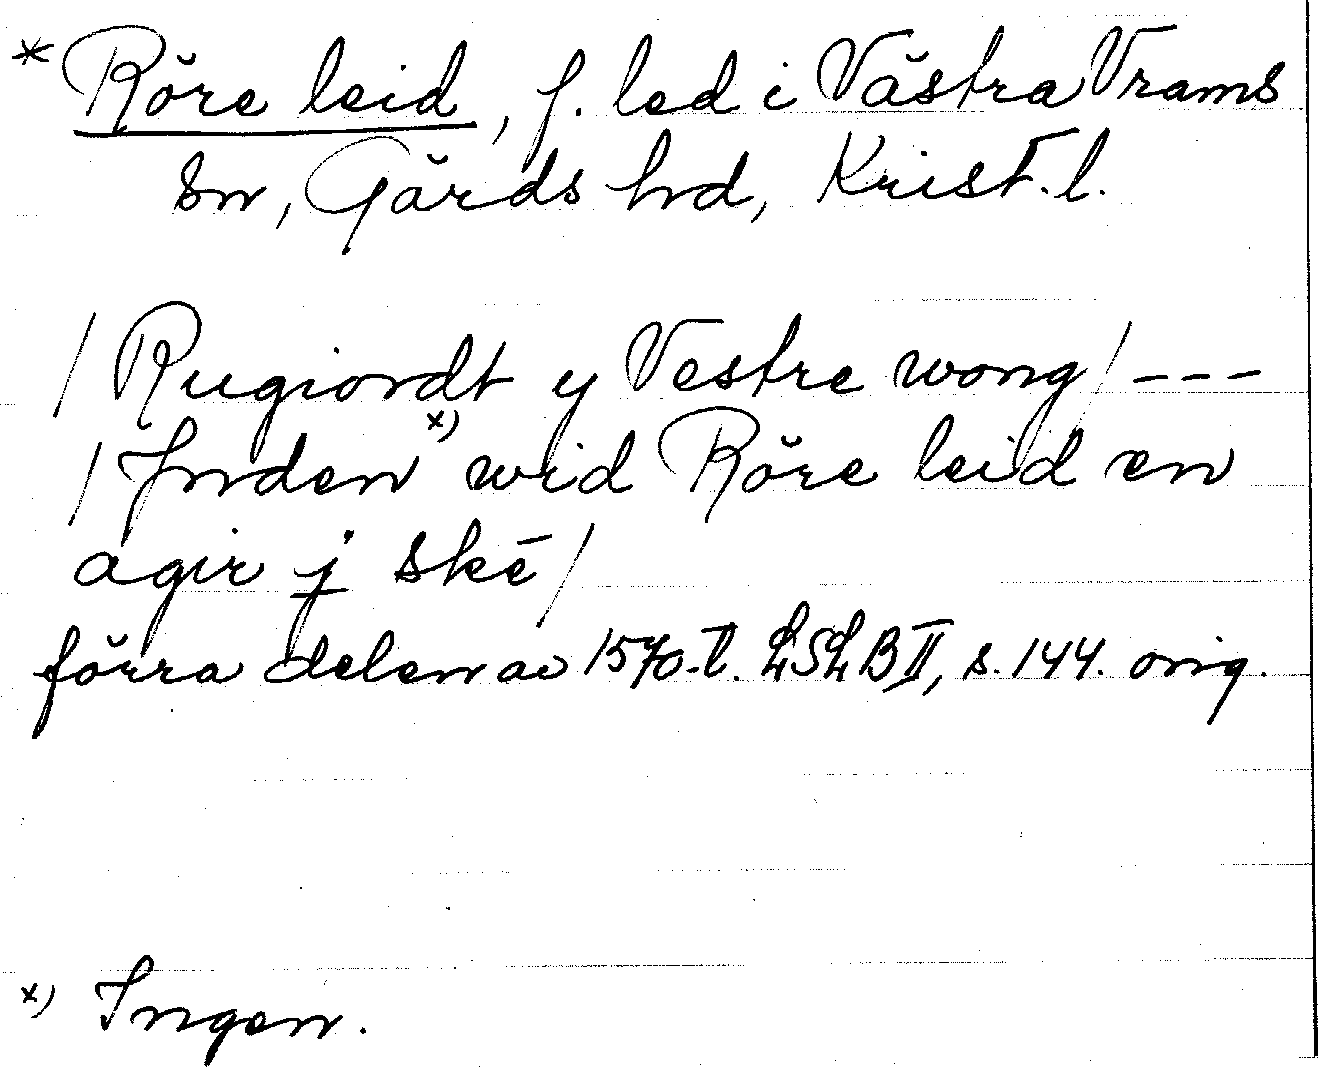 * Röre leid, f. led i Västra Vrams
sn, Gärds hd, Krist. l.
/ Rugiordt y Vestre wong / ---
/ Jnden x) wid Röre leid en
agir j skē /
förra delen av 1570-t. LSLB II, s. 144. orig.
x) Ingen.